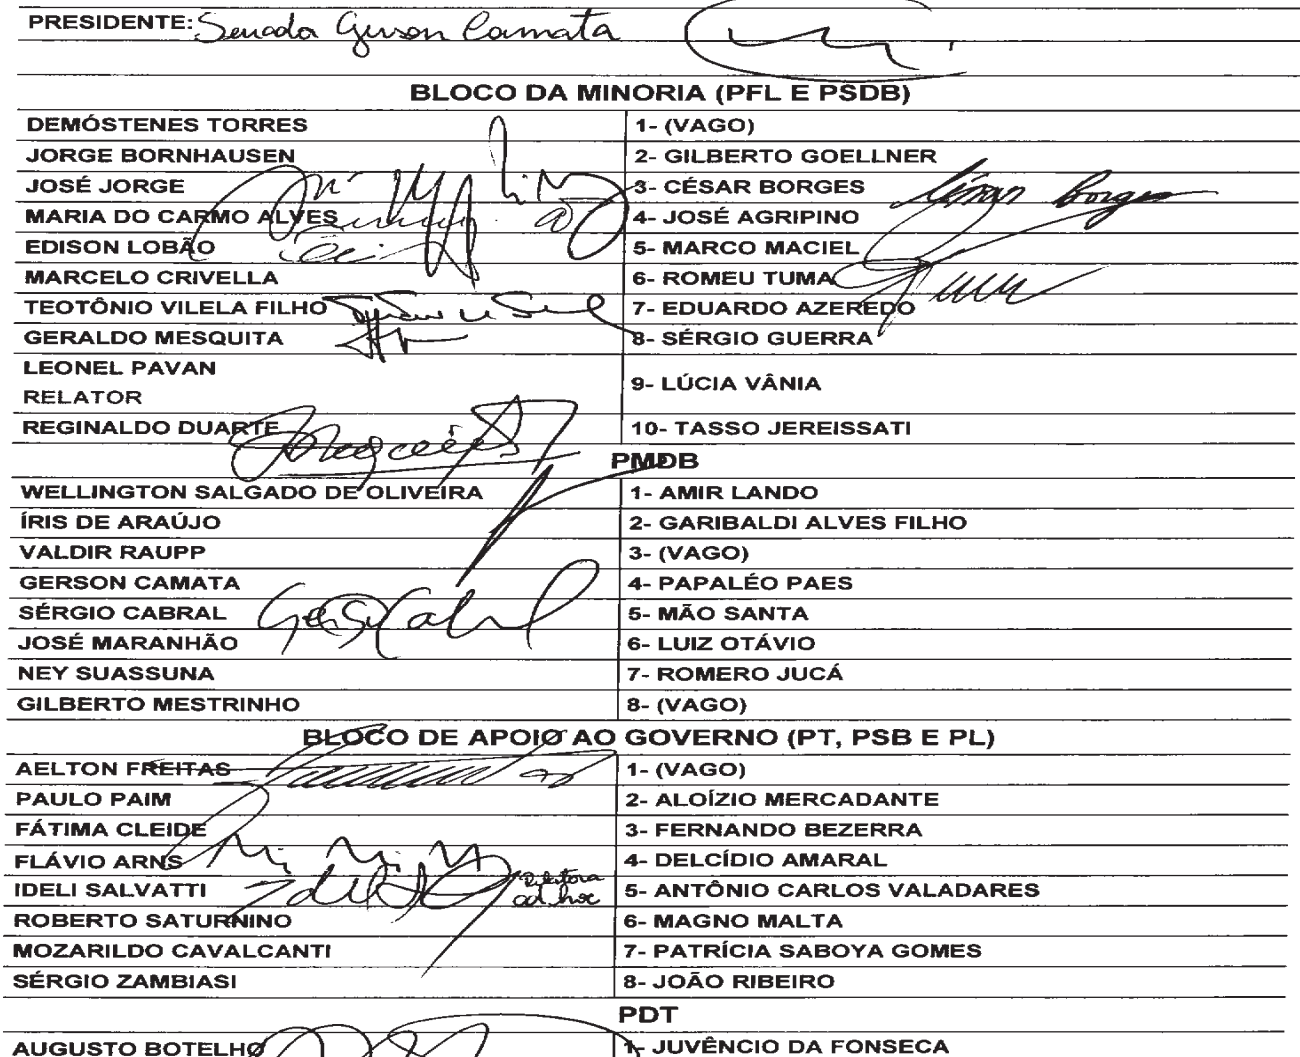 PRESIDENTE: Senador Gerson Camata
BLOCO DA MINORIA (PFL E PSDB)
DEMÓSTENES TORRES 1- (VAGO)
JORGE BORNHAUSEN 2- GILBERTO GOELLNER
JOSÉ JORGE 3- CÉSAR BORGES César Borges
MARIA DO CARMO ALVES 4- JOSÉ AGRIPINO
EDISON LOBÃO 5- MARCO MACIEL
MARCELO CRIVELLA 6- ROMEU TUMA
TEOTÔNIO VILELA FILHO 7- EDUARDO AZEREDO
GERALDO MESQUITA 8- SÉRGIO GUERRA
LEONEL PAVAN
RELATOR 9- LÚCIA VÂNIA
REGINALDO DUARTE 10- TASSO JEREISSATI
PMDB
WELLINGTON SALGADO DE OLIVEIRA 1- AMIR LANDO
ÍRIS DE ARAÚJO 2- GARIBALDI ALVES FILHO
VALDIR RAUPP 3- (VAGO)
GERSON CAMATA 4- PAPALÉO PAES
SÉRGIO CABRAL 5- MÃO SANTA
JOSÉ MARANHÃO 6- LUIZ OTÁVIO
NEY SUASSUNA 7- ROMERO JUCÁ
GILBERTO MESTRINHO 8- (VAGO)
BLOCO DE APOIO AO GOVERNO (PT, PSB E PL)
AELTON FREITAS 1- (VAGO)
PAULO PAIM 2- ALOÍZIO MERCADANTE
FÁTIMA CLEIDE 3- FERNANDO BEZERRA
FLÁVIO ARNS 4- DELCÍDIO AMARAL
IDELI SALVATTI Relatora ad hoc 5- ANTÔNIO CARLOS VALADARES
ROBERTO SATURNINO 6- MAGNO MALTA
MOZARILDO CAVALCANTI 7- PATRÍCIA SABOYA GOMES
SÉRGIO ZAMBIASI 8- JOÃO RIBEIRO
PDT
AUGUSTO BOTELHO 1- JUVÊNCIO DA FONSECA